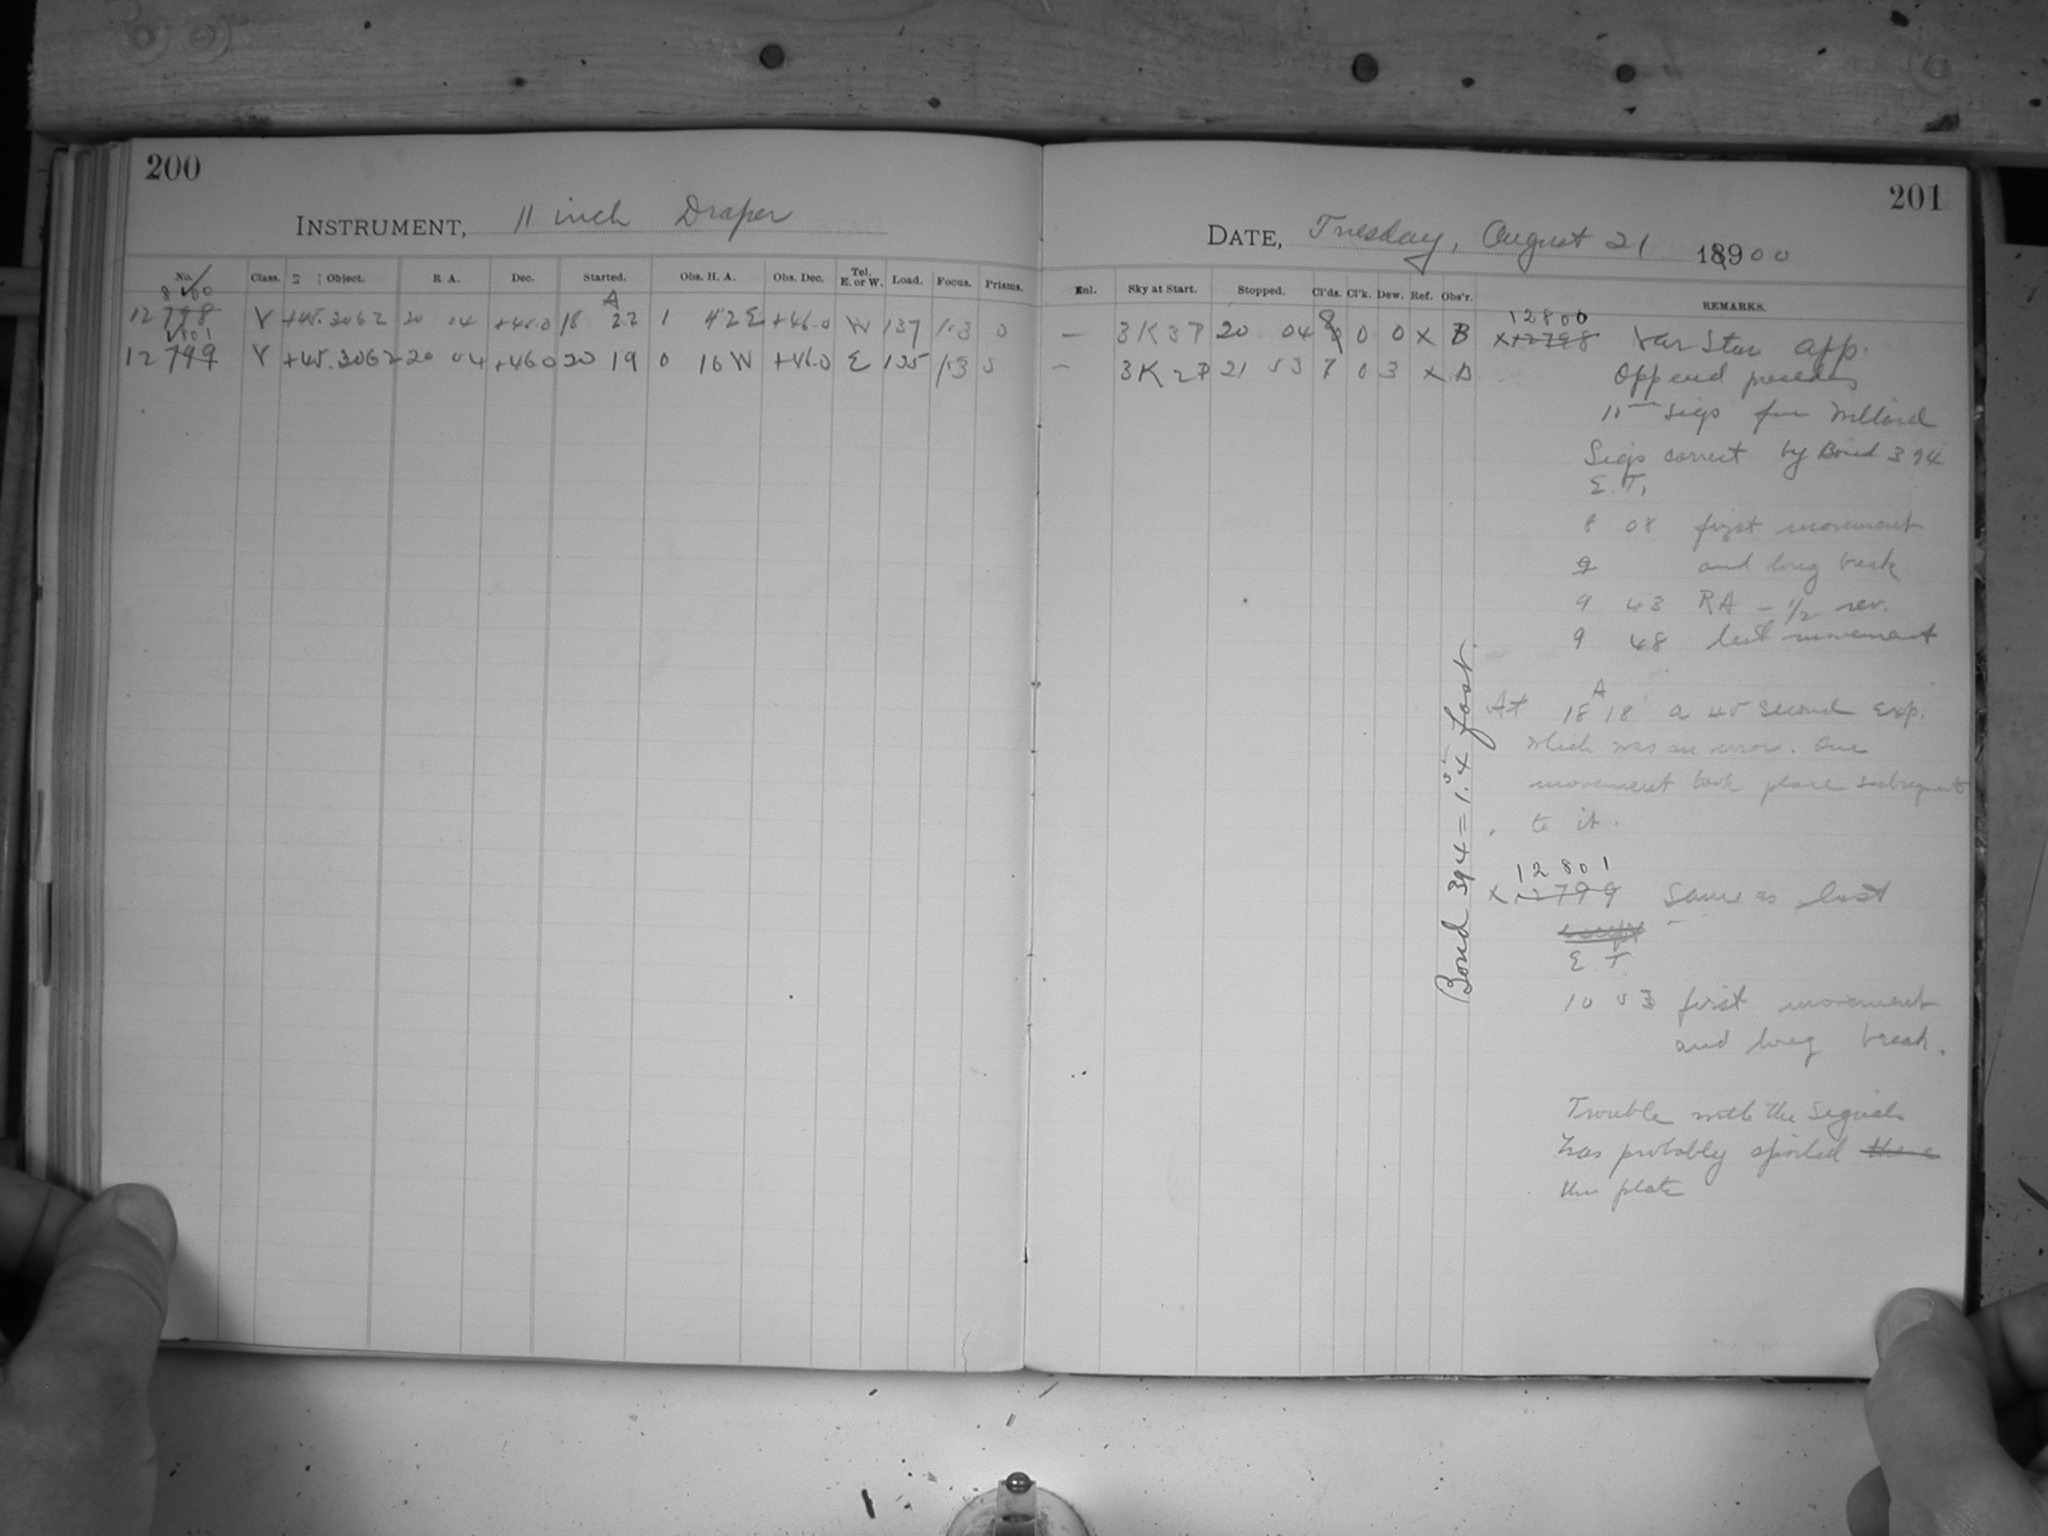 200
INSTRUMENT, 11 inch Draper
No. Class. Object. R A. Dec. Started. Obs. H. A. Obs. Dec. Tel. E. or W. Load. Focus. Prisms.
800
12798 V +45.3062 20 04 +46.0 18 A 22 1 42 E +46.0 W 137 1.3 0
801
12799 V +45.3062 20 04 +46.0 20 19 0 16 W +46.0 E 135 1.3
201
DATE, Tuesday, August 21 1900
Enl. Sky at Start. Stopped. Cl'ds. Cl'k. Dew. Ref. Obs'r. REMARKS.
12800
– 3K3P 20 04 8 0 0 X B X 12798 Var Star app.
– 3K2P 21 53 7 0 3 X B Opp end precedes
11 sigs for Willard
Sigs correct by Bond 394
E. T.
8 08 first movement
9 and long break
9 43 RA – 1/2 rev.
9 48 last movement
Bond 394 = 1.4 s fast.
At 18 A 18 a 45 second exp.
which was an error. One
movement took place subsequent
to it.
12801
X 12799 Same as last
E. T.
10 03 first movement
and long break.
Trouble with the signals
has probably spoiled these
this plate